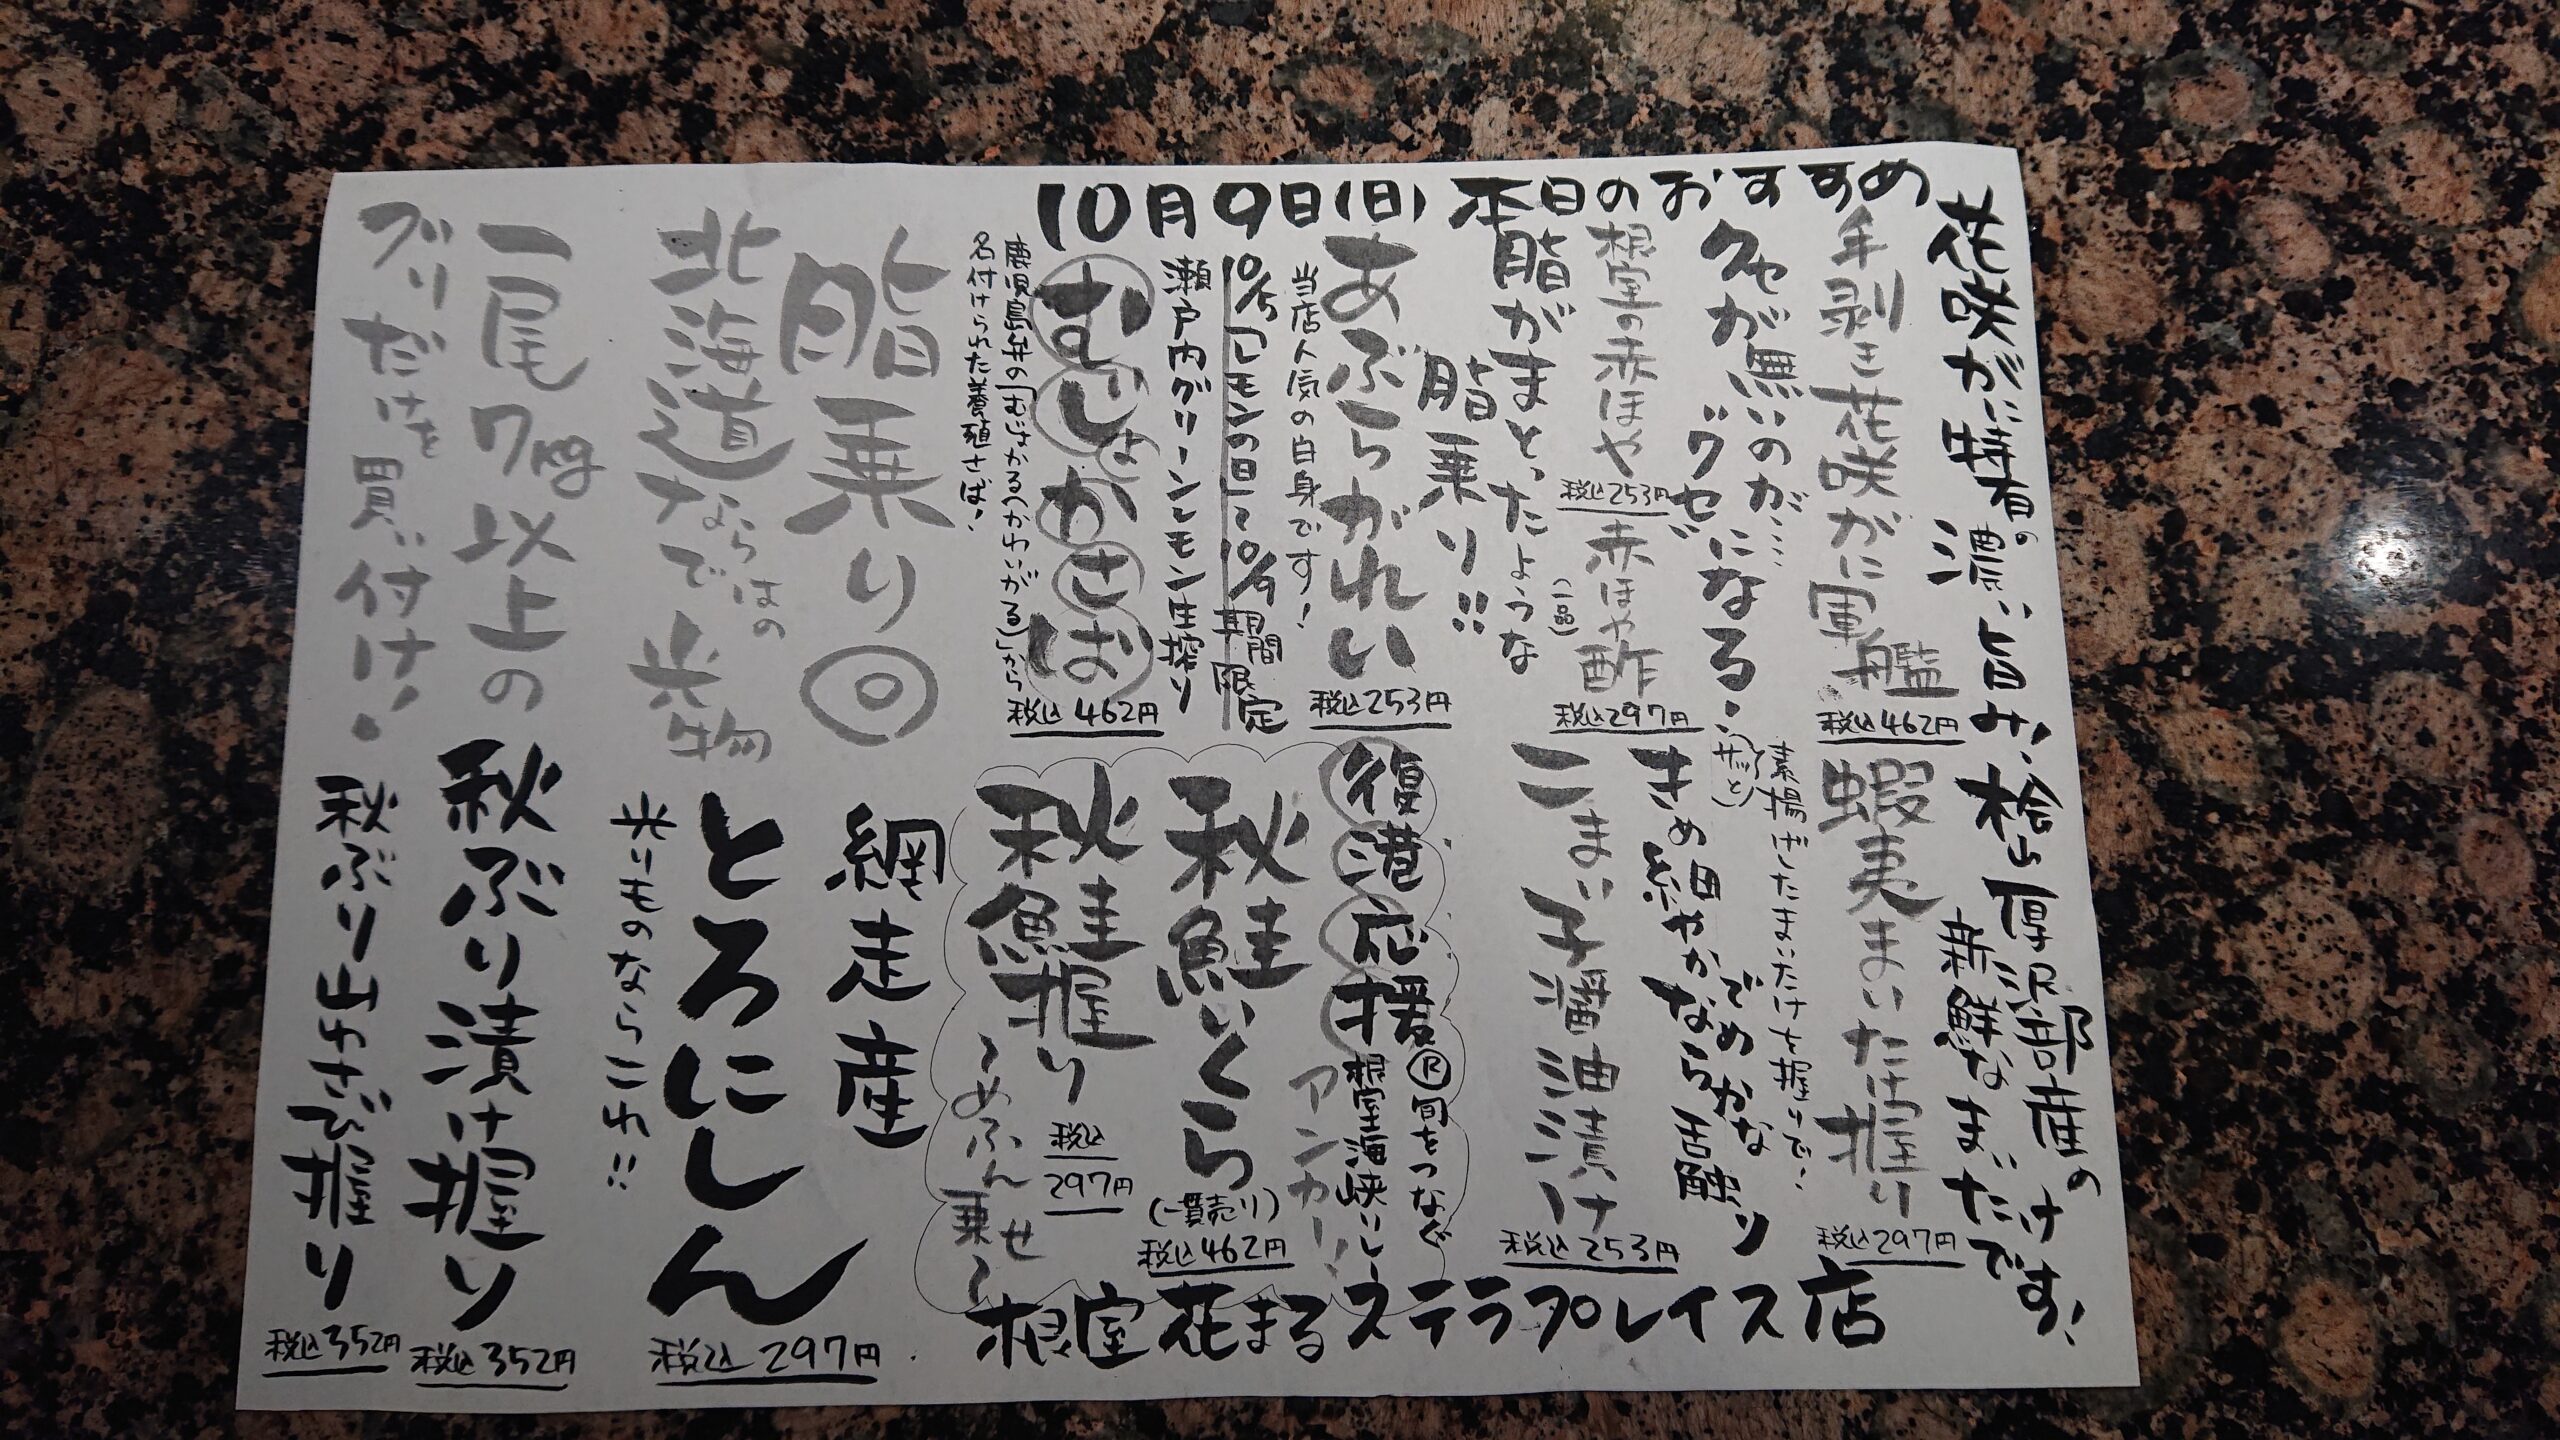 10月9日(日) 本日のおすすめ
花咲がに特有の
濃い旨み!
手剥き花咲がに軍艦
税込462円
クセが無いのが…
"クセ"になる!
根室の赤ほや
税込253円
赤ほや酢
(一品)
税込297円
脂がまとったような
脂乗り!!
あぶらがれい
税込253円
当店人気の白身です!
10/5「レモンの日」〜10/9 期間限定
瀬戸内グリーンレモン生搾り
むじょかさば
税込462円
鹿児島弁の「むぜがる(かわいがる)」から
名付けられた養殖さば!
桧山厚沢部産の
新鮮なまいたけです!
蝦夷まいたけ握り
税込297円
素揚げしたまいたけを握りで!
(サッと)
きめ細やかでめらかな
なら舌触り
こまい子醤油漬け
税込253円
復港応援
®旬をつなぐ
根室海峡リレー
アンカー!
秋鮭いくら
(一貫売り)
税込462円
秋鮭握り
税込
297円
〜めふん乗せ〜
脂乗り◎
北海道ならではの
光物
網走産
とろにしん
税込297円
光りものならこれ!!
一尾7kg以上の
ブリだけを買い付け!
秋ぶり漬け握り
税込352円
秋ぶり山わさび握り
税込352円
根室花まるステラプレイス店